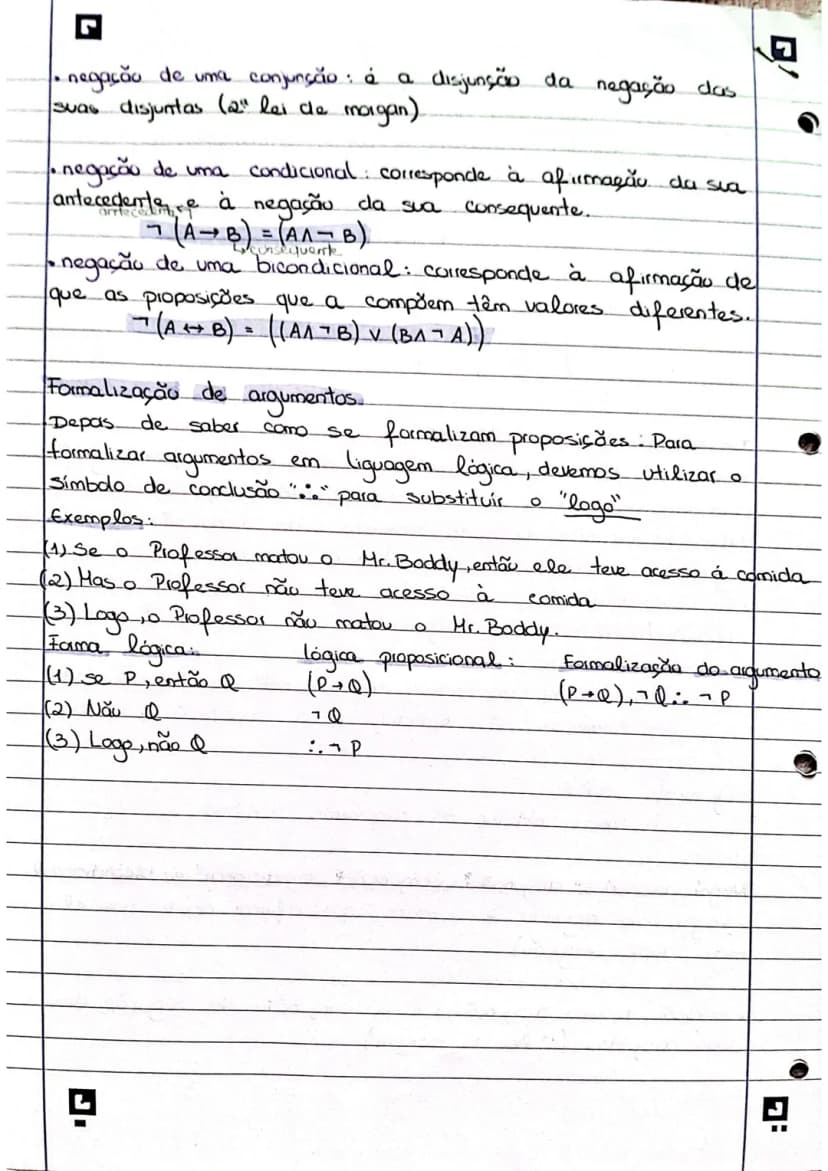 • negação de uma conjunção: é a disjunção da negação das
suas disjuntas (2ª lei de morgan)
• negação de uma condicional: corresponde à afirmação da sua
antecedente, e à negação da sua consequente.
antecedente
¬(A→B) = (A∧¬B)
↳consequente
• negação de uma bicondicional: corresponde à afirmação de
que as proposições que a compõem têm valores diferentes.
¬(A↔B) = ((A∧¬B) ∨ (B∧¬A))
Formalização de argumentos.
Depois de saber como se formalizam proposições: Para
formalizar argumentos em liguagem lógica, devemos utilizar o
símbolo de conclusão "∴" para substituir o "logo"
Exemplos:
(1) Se o Professor matou o Mr. Boddy, então ele teve acesso á comida
(2) Mas o Professor não teve acesso à comida
(3) Logo, o Professor não matou o Mr. Boddy.
Forma lógica: lógica proposicional: Formalização do argumento
(1) se P, então Q (P→Q) (P→Q), ¬Q ∴ ¬P
(2) Não Q ¬Q
(3) Logo, não Q ∴ ¬P